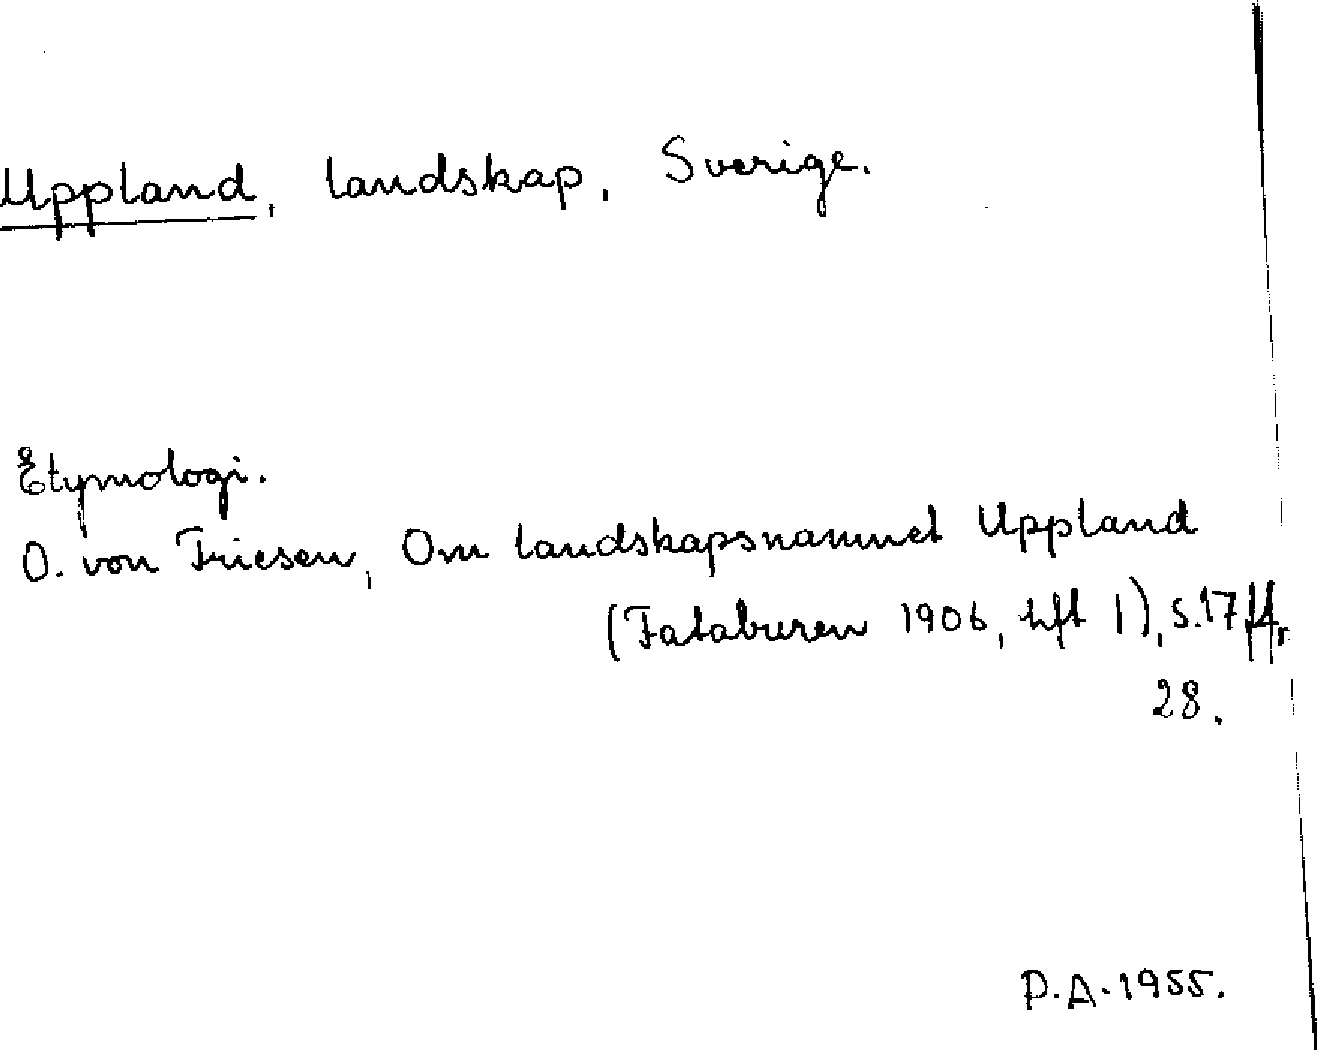 Uppland, landskap, Sverige.
Etymologi.
O. von Friesen, Om landskapsnamnet Uppland
(Fataburen 1906, hft 1), s. 17 ff,
28.
P.A. 1955.